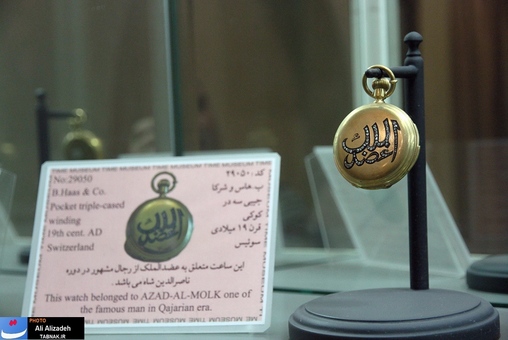 TIME MUSEUM TIME MUSEUM TIME MUSEUM
No:29050
B.Haas & Co.
Pocket triple-cased
winding
19th cent. AD
Switzerland
کد: ۲۹۰۵۰
ب. هاس و شرکا
جیبی سه در
کوکی
قرن ۱۹ میلادی
سوئیس
این ساعت متعلق به عضدالملک از رجال مشهور در دوره
ناصرالدین شاه می باشد.
This watch belonged to AZAD-AL-MOLK one of
the famous man in Qajarian era.
PHOTO
Ali Alizadeh
TABNAK.IR